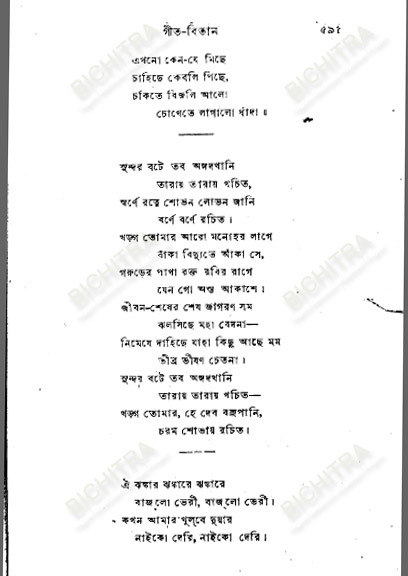 গীত-বিতান ৫৯১
এখনো কেন-যে মিছে
চাহিছে কেবলি পিছে,
চকিতে বিজলি আলো
চোখেতে লাগালো ধাঁদা॥
সুন্দর বটে তব অঙ্গদখানি
তারায় তারায় খচিত,
স্বর্ণে রত্নে শোভন লোভন জানি
বর্ণে বর্ণে রচিত।
খড়্গ তোমার আরো মনোহর লাগে
বাঁকা বিদ্যুতে আঁকা সে,
গরুড়ের পাখা রক্ত রবির রাগে
যেন গো অস্ত আকাশে।
জীবন-শেষের শেষ জাগরণ সম
ঝলসিছে মহা বেদনা—
নিমেষে দাহিছে যাহা কিছু আছে মম
তীব্র ভীষণ চেতনা।
সুন্দর বটে তব অঙ্গদখানি
তারায় তারায় খচিত—
খড়্গ তোমার, হে দেব বজ্রপানি,
চরম শোভায় রচিত।
ঐ ঝঙ্কার ঝঙ্কারে ঝঙ্কারে
বাজলো ভেরী, বাজলো ভেরী।
কখন আমার খুলবে দুয়ার
নাইকো দেরি, নাইকো দেরি।
BICHITRA
BICHITRA
BICHITRA
BICHITRA
BICHITRA
BICHITRA